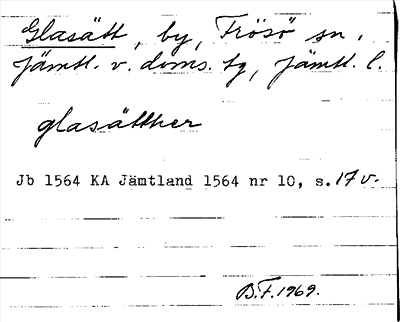 Glasätt, by, Frösö sn,
Jämtl. v. doms. tg, Jämtl. l.
glasätther
Jb 1564 KA Jämtland 1564 nr 10, s. 17 v.
B.F. 1969.